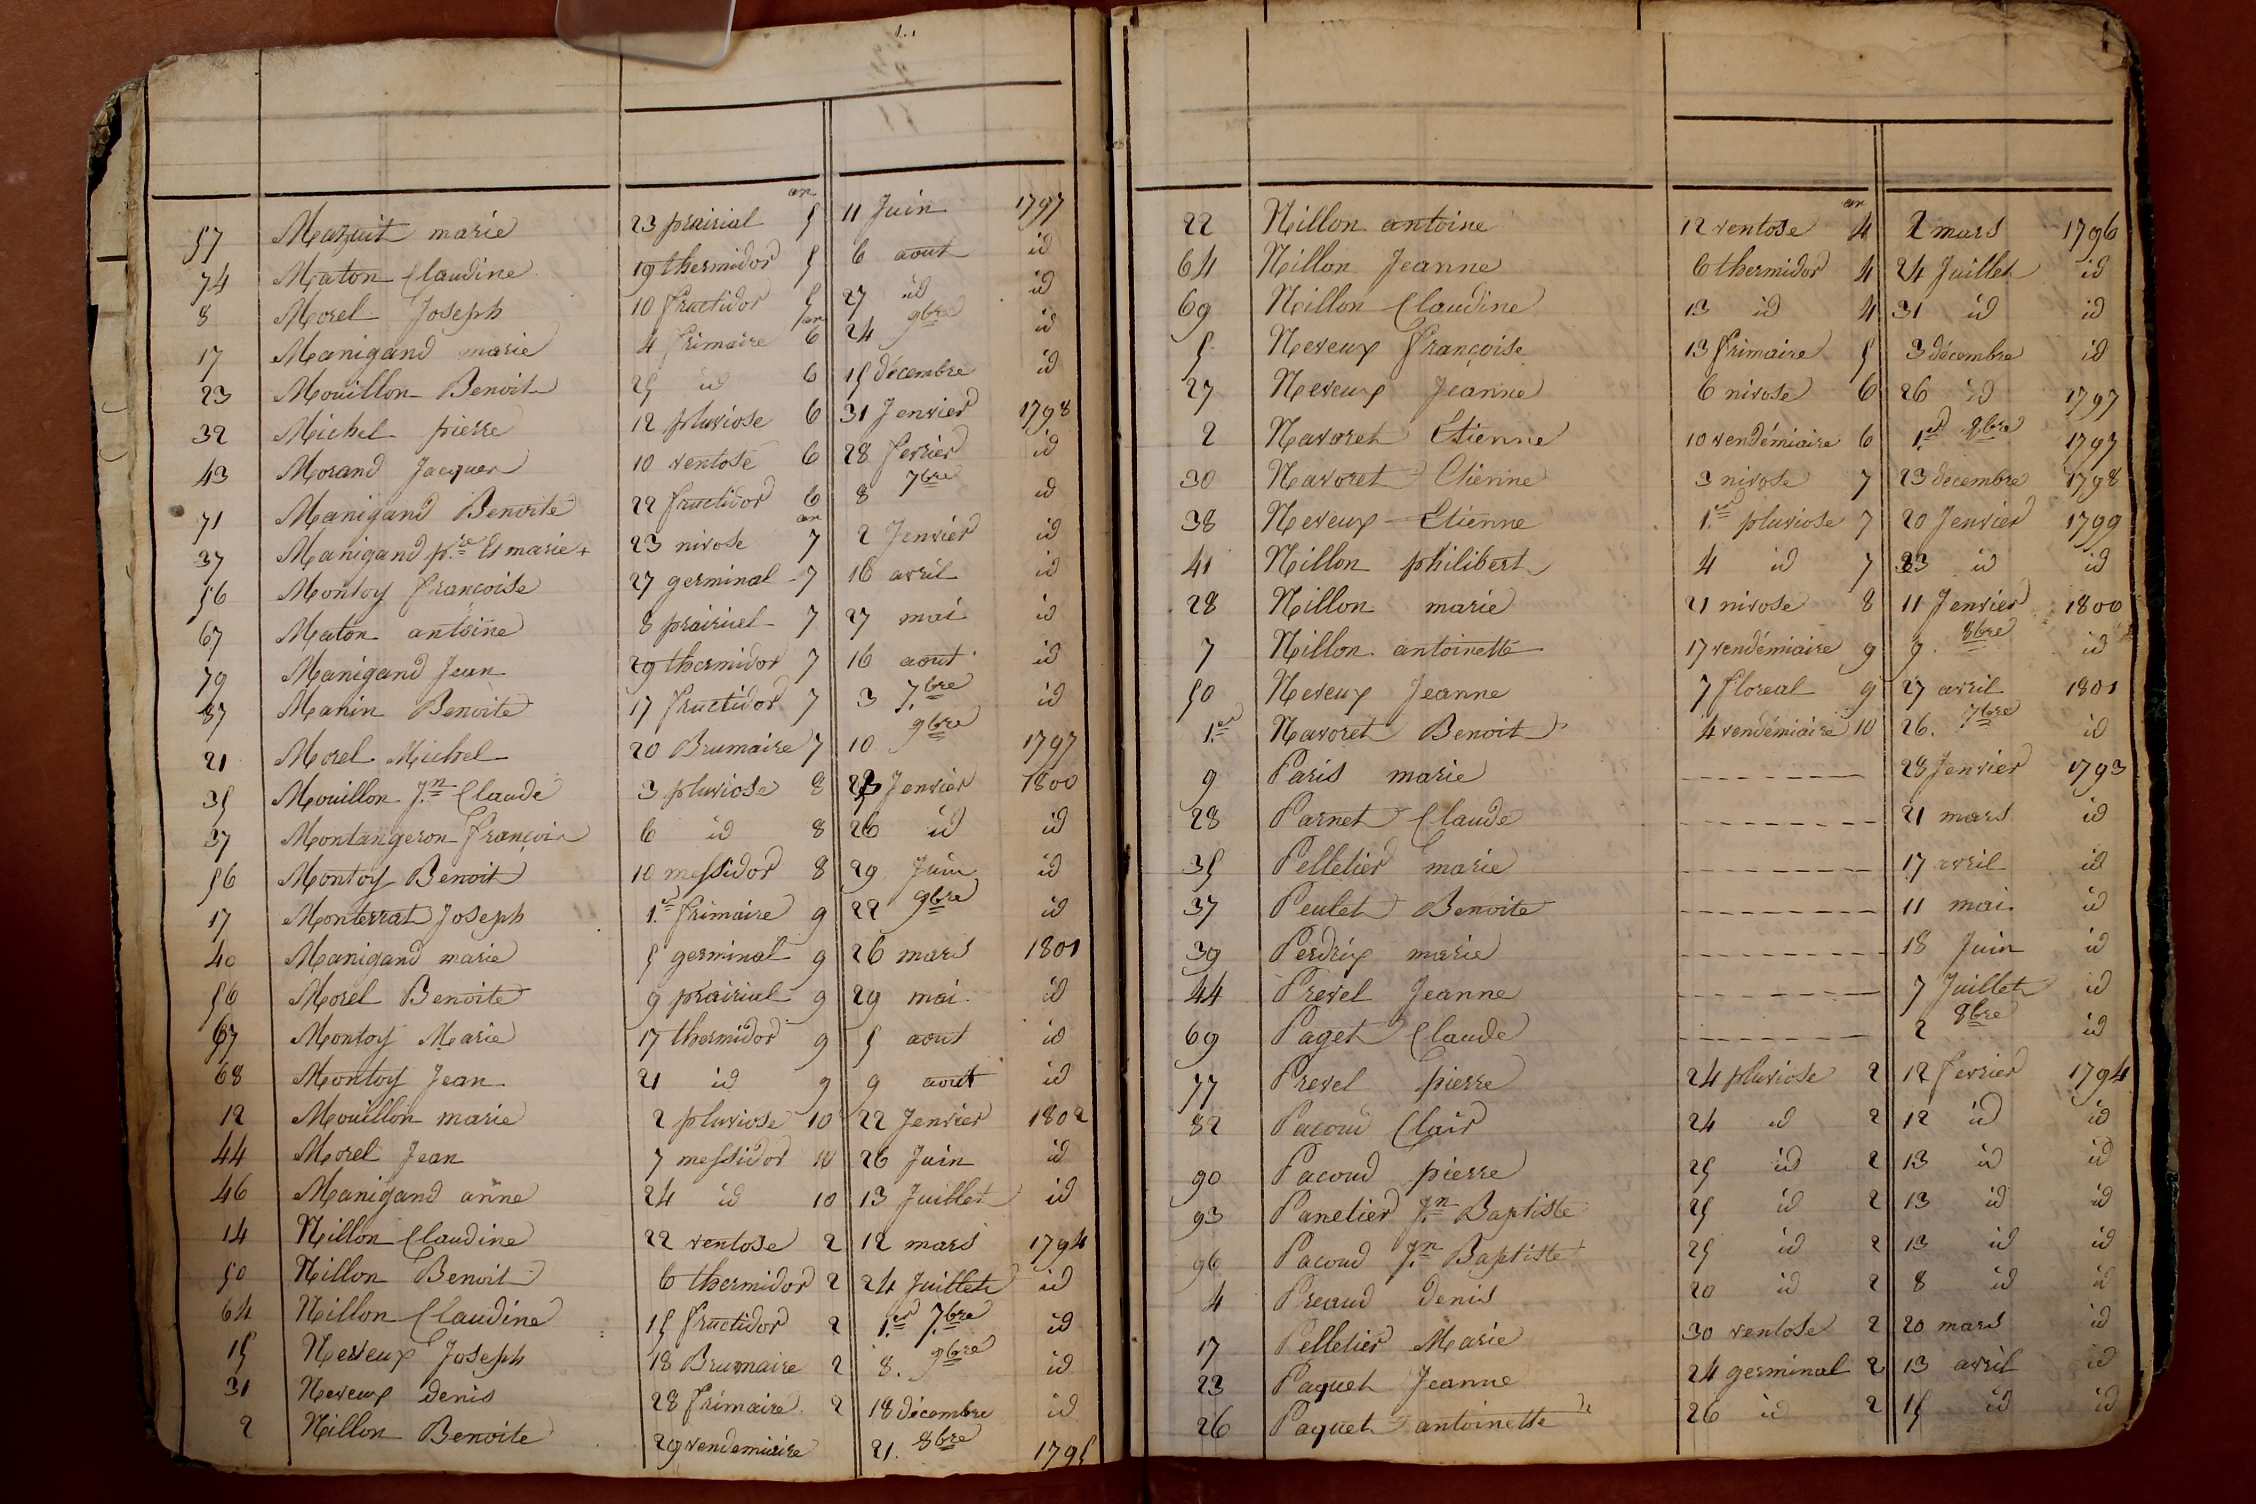 an
57 Mazuit marie 23 prairial 5 11 Juin 1797
74 Maton Claudine 19 thermidor 5 6 aout id
8 Morel Joseph 10 fructidor 5 27 id id
17 Manigand marie 4 frimaire an 6 24 9bre id
23 Mouillon Benoit 25 id 6 15 décembre id
32 Michel pierre 12 pluviose 6 31 Jenvier 1798
43 Morand Jacques 10 ventose 6 28 fevrier id
71 Manigand Benoite 22 fructidor 6 8 7bre id
37 Manigand p.re Et marie + 23 nivose an 7 2 Jenvier id
56 Montoy francoise 27 germinal 7 16 avril id
67 Maton antoine 8 prairial 7 27 mai id
79 Manigand Jean 29 thermidor 7 16 aout id
87 Manin Benoite 17 fructidor 7 3 7.bre id
21 Morel Michel 20 Brumaire 7 10 9bre 1797
35 Mouillon J.n Claude 3 pluviose 8 23 Jenvier 1800
37 Montangeron françois 6 id 8 26 id id
56 Montoy Benoit 10 messidor 8 29 Juin id
17 Monterrat Joseph 1.er frimaire 9 22 9bre id
40 Manigand marie 5 germinal 9 26 mars 1801
56 Morel Benoite 9 prairial 9 29 mai id
67 Montoy Marie 17 thermidor 9 5 aout id
68 Montoy Jean 21 id 9 9 aout id
12 Mouillon marie 2 pluviose 10 22 Jenvier 1802
44 Morel Jean 7 messidor 10 26 Juin id
46 Manigand anne 24 id 10 13 Juillet id
14 Nillon Claudine 22 ventose 2 12 mars 1794
50 Nillon Benoit 6 thermidor 2 24 Juillet id
64 Nillon Claudine 15 fructidor 2 1.er 7.bre id
15 Neveux Joseph 18 Brumaire 2 8. 9bre id
31 Neveux denis 28 frimaire 2 18 décembre id
2 Nillon Benoite 29 vendemiaire 21. 8bre 1795
an
22 Nillon antoine 12 ventose 4 2 mars 1796
64 Nillon Jeanne 6 thermidor 4 24 Juillet id
69 Nillon Claudine 13 id 4 31 id id
5 Neveux françoise 13 frimaire 5 3 décembre id
27 Neveux Jeanne 6 nivose 6 26 id 1797
2 Navoret Etienne 10 vendémiaire 6 1.er 8bre 1797
30 Navoret Etienne 3 nivose 7 23 decembre 1798
38 Neveux Etienne 1.er pluviose 7 20 Jenvier 1799
41 Nillon philibert 4 id 7 23 id id
28 Nillon marie 21 nivose 8 11 Jenvier 1800
7 Nillon antoinette 17 vendémiaire 9 9. 8bre id
50 Neveux Jeanne 7 floreal 9 27 avril 1801
1.er Navoret Benoit 4 vendémiaire 10 26. 7bre id
9 Paris marie 28 Jenvier 1793
28 Parnet Claude 21 mars id
35 Pelletier marie 17 avril id
37 Peulet Benoite 11 mai id
39 Perdrix marie 18 Juin id
44 Prevel Jeanne 7 Juillet id
69 Paget Claude 2 8bre id
77 Prevel pierre 24 pluviose 2 12 fevrier 1794
82 Pacoud Clair 24 id 2 12 id id
90 Pacoud pierre 25 id 2 13 id id
93 Panetier J.n Baptiste 25 id 2 13 id id
96 Pacoud J.n Baptiste 25 id 2 13 id id
4 Preaud denis 20 id 2 8 id id
17 Pelletier Marie 30 ventose 2 20 mars id
23 Paquet Jeanne 24 germinal 2 13 avril id
26 Paquet antoinette 26 id 2 15 id id